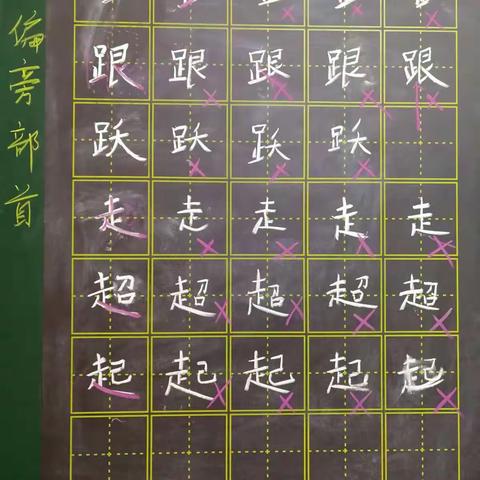 偏旁部首
跟跟跟跟跟
跃跃跃跃
走走走走走
超超超超超
起起起起起